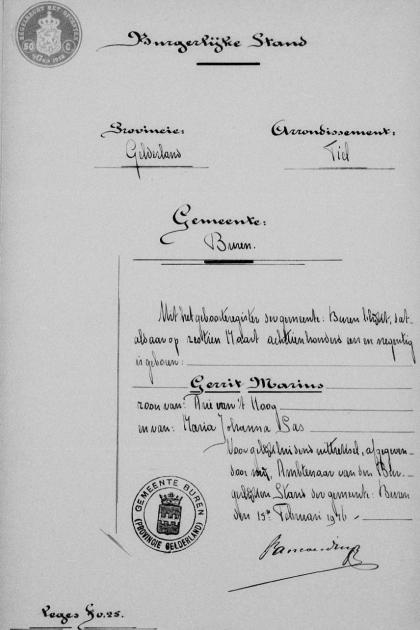 50 C
Burgerlijke Stand
Provincie: Arrondissement:
Gelderland Tiel
Gemeente:
Buren.
Uit het geboorteregister der gemeente: Buren blijkt, dat
aldaar op zestien Maart achttienhonderd een en negentig
is geboren:
Gerrit Marinus
zoon van: Arie van 't Hoog
en van: Maria Johanna Bas
Voor gelijkluidend uittreksel, afgegeven
door mij Ambtenaar van den Bur-
gerlijken Stand der gemeente: Buren
den 15en Februari 1916.
GEMEENTE BUREN
(PROVINCIE GELDERLAND)
Leges f 0.25.